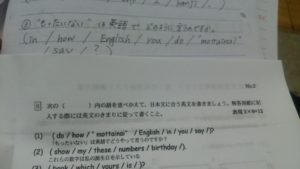 ② "もったいない"は英語で どのように言うのですか。
(in / how / English / you / do / "mottainai"
/ say / ?)
No2
次の( )内の語を並べかえて、日本文に合う英文を書きましょう。解答用紙に記
入する際には英文のきまりに従って書くこと。 表現2×6=12
(1) ( do / how / "mottainai" / English / in / you / say / ?)
「もったいない」は英語でどうやって言うのですか?
(2) ( show / my / these / numbers / birthday /).
これらの数字は私の誕生日を示している
(3) ( book / which / yours / is / )?